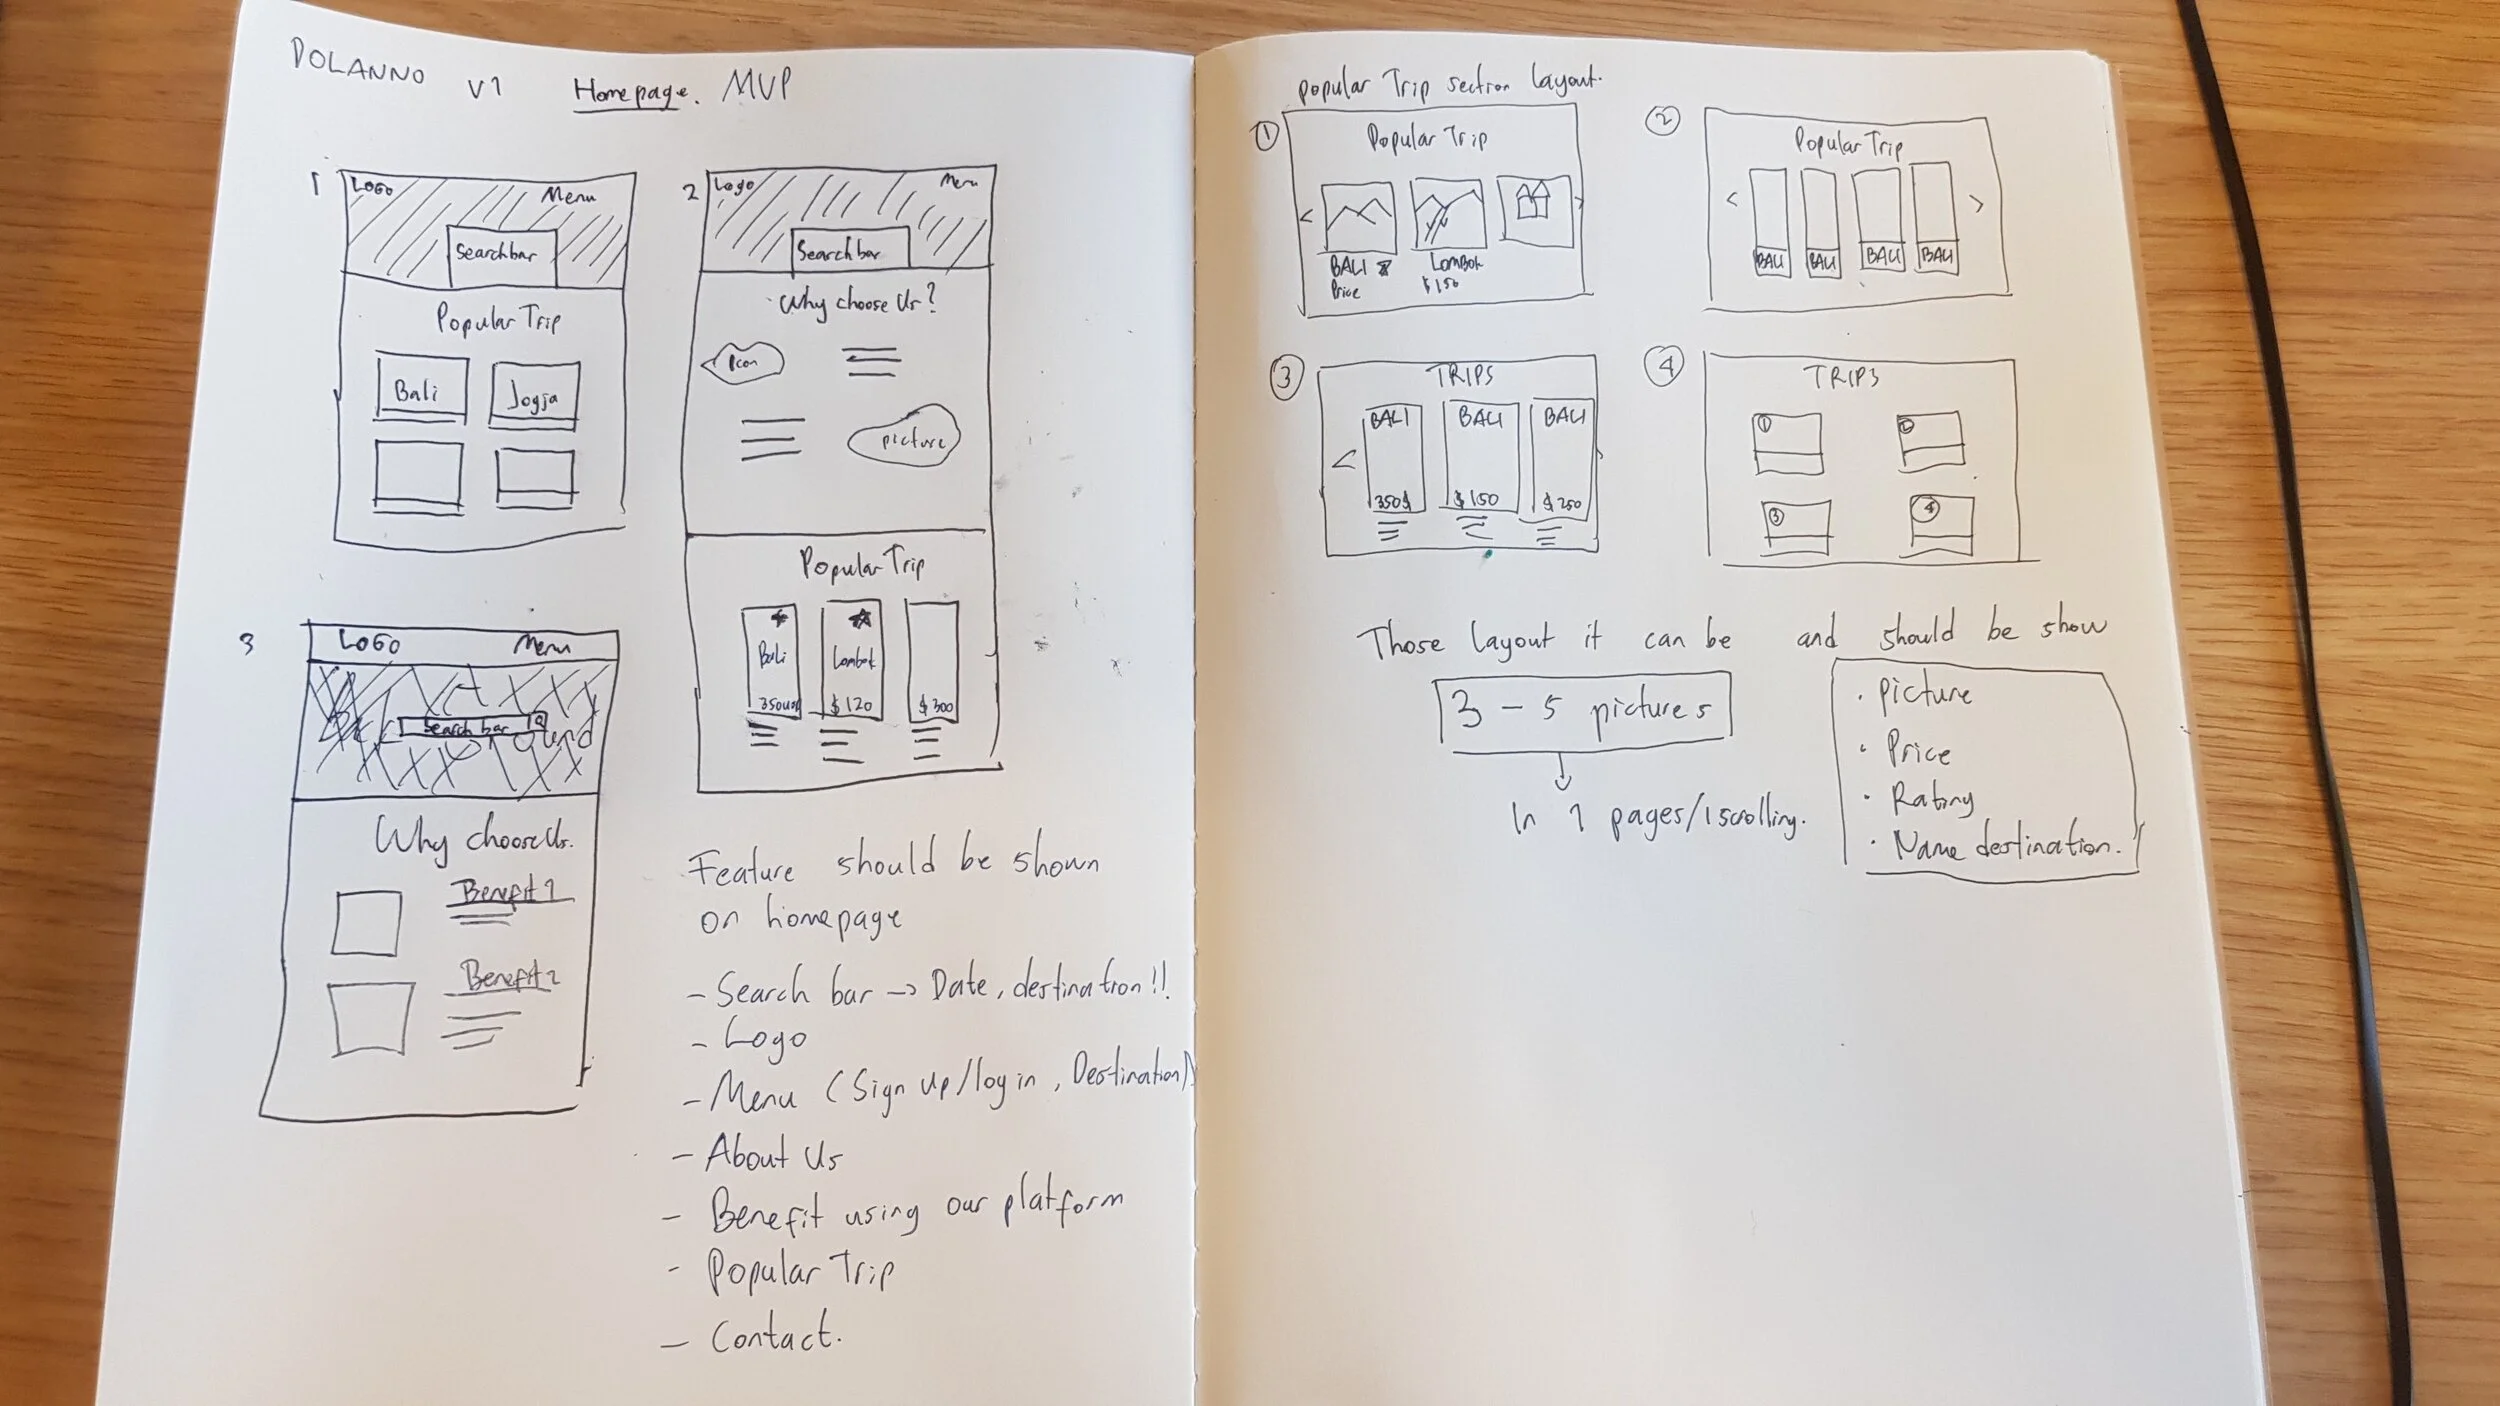 DOLANNO v1 Homepage. MVP
1
LOGO Menu
Searchbar
Popular Trip
Bali Jogja
2
Logo Menu
Searchbar
Why choose Us?
Icon
picture
Popular Trip
Bali Lombok
350USD $120 $300
3
LOGO Menu
Search bar
Why choose Us.
Benefit 1
Benefit 2
Feature should be shown
on homepage
- Search bar -> Date, destination!!
- Logo
- Menu (Sign up/log in, Destination)
- About Us
- Benefit using our platform
- Popular Trip
- Contact.
Popular Trip section layout.
1
Popular Trip
< >
BALI Lombok
Price $150
2
Popular Trip
< >
BALI BALI BALI BALI
3
TRIPS
BALI BALI BALI
<
350$ $150 $250
4
TRIPS
1 2
3 4
Those layout it can be and should be show
3 - 5 pictures
In 1 pages/1 scrolling.
· picture
· Price
· Rating
· Name destination.